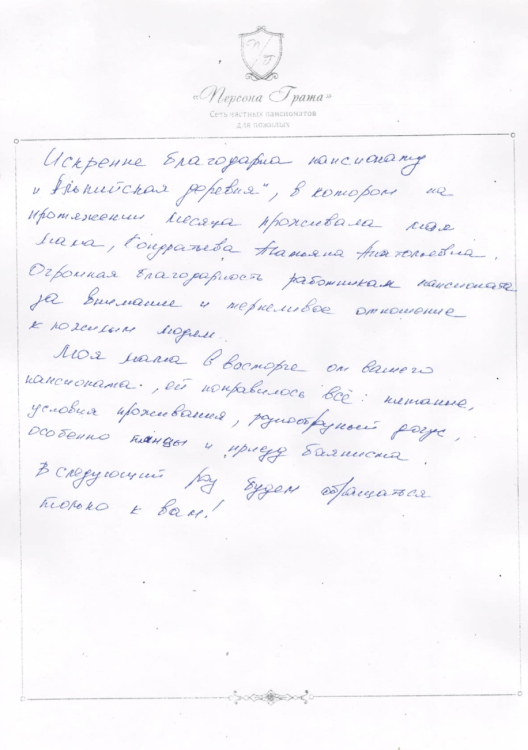 «Персона Грата»
Сеть частных пансионатов
для пожилых
Искренне благодарна пансионату
„Альпийская деревня“, в котором на
протяжении месяца проживала моя
мама, Кондратьева Татьяна Анатольевна.
Огромная благодарность работникам пансионата
за внимание и терпеливое отношение
к пожилым людям.
Моя мама в восторге от вашего
пансионата, ей понравилось всё: питание,
условия проживания, досуг,
особенно танцы и приезд баяниста.
В следующий раз будем обращаться
только к вам!